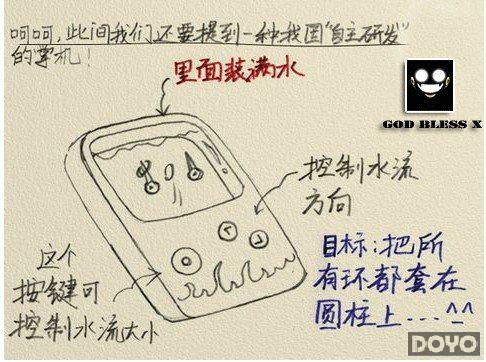 呵呵,此间我们还要提到一种我国"自主研发"
的掌机!
里面装满水
GOD BLESS X
控制水流
方向
这个
按键可
控制水流大小
目标:把所
有环都套在
圆柱上...^^
DOYO